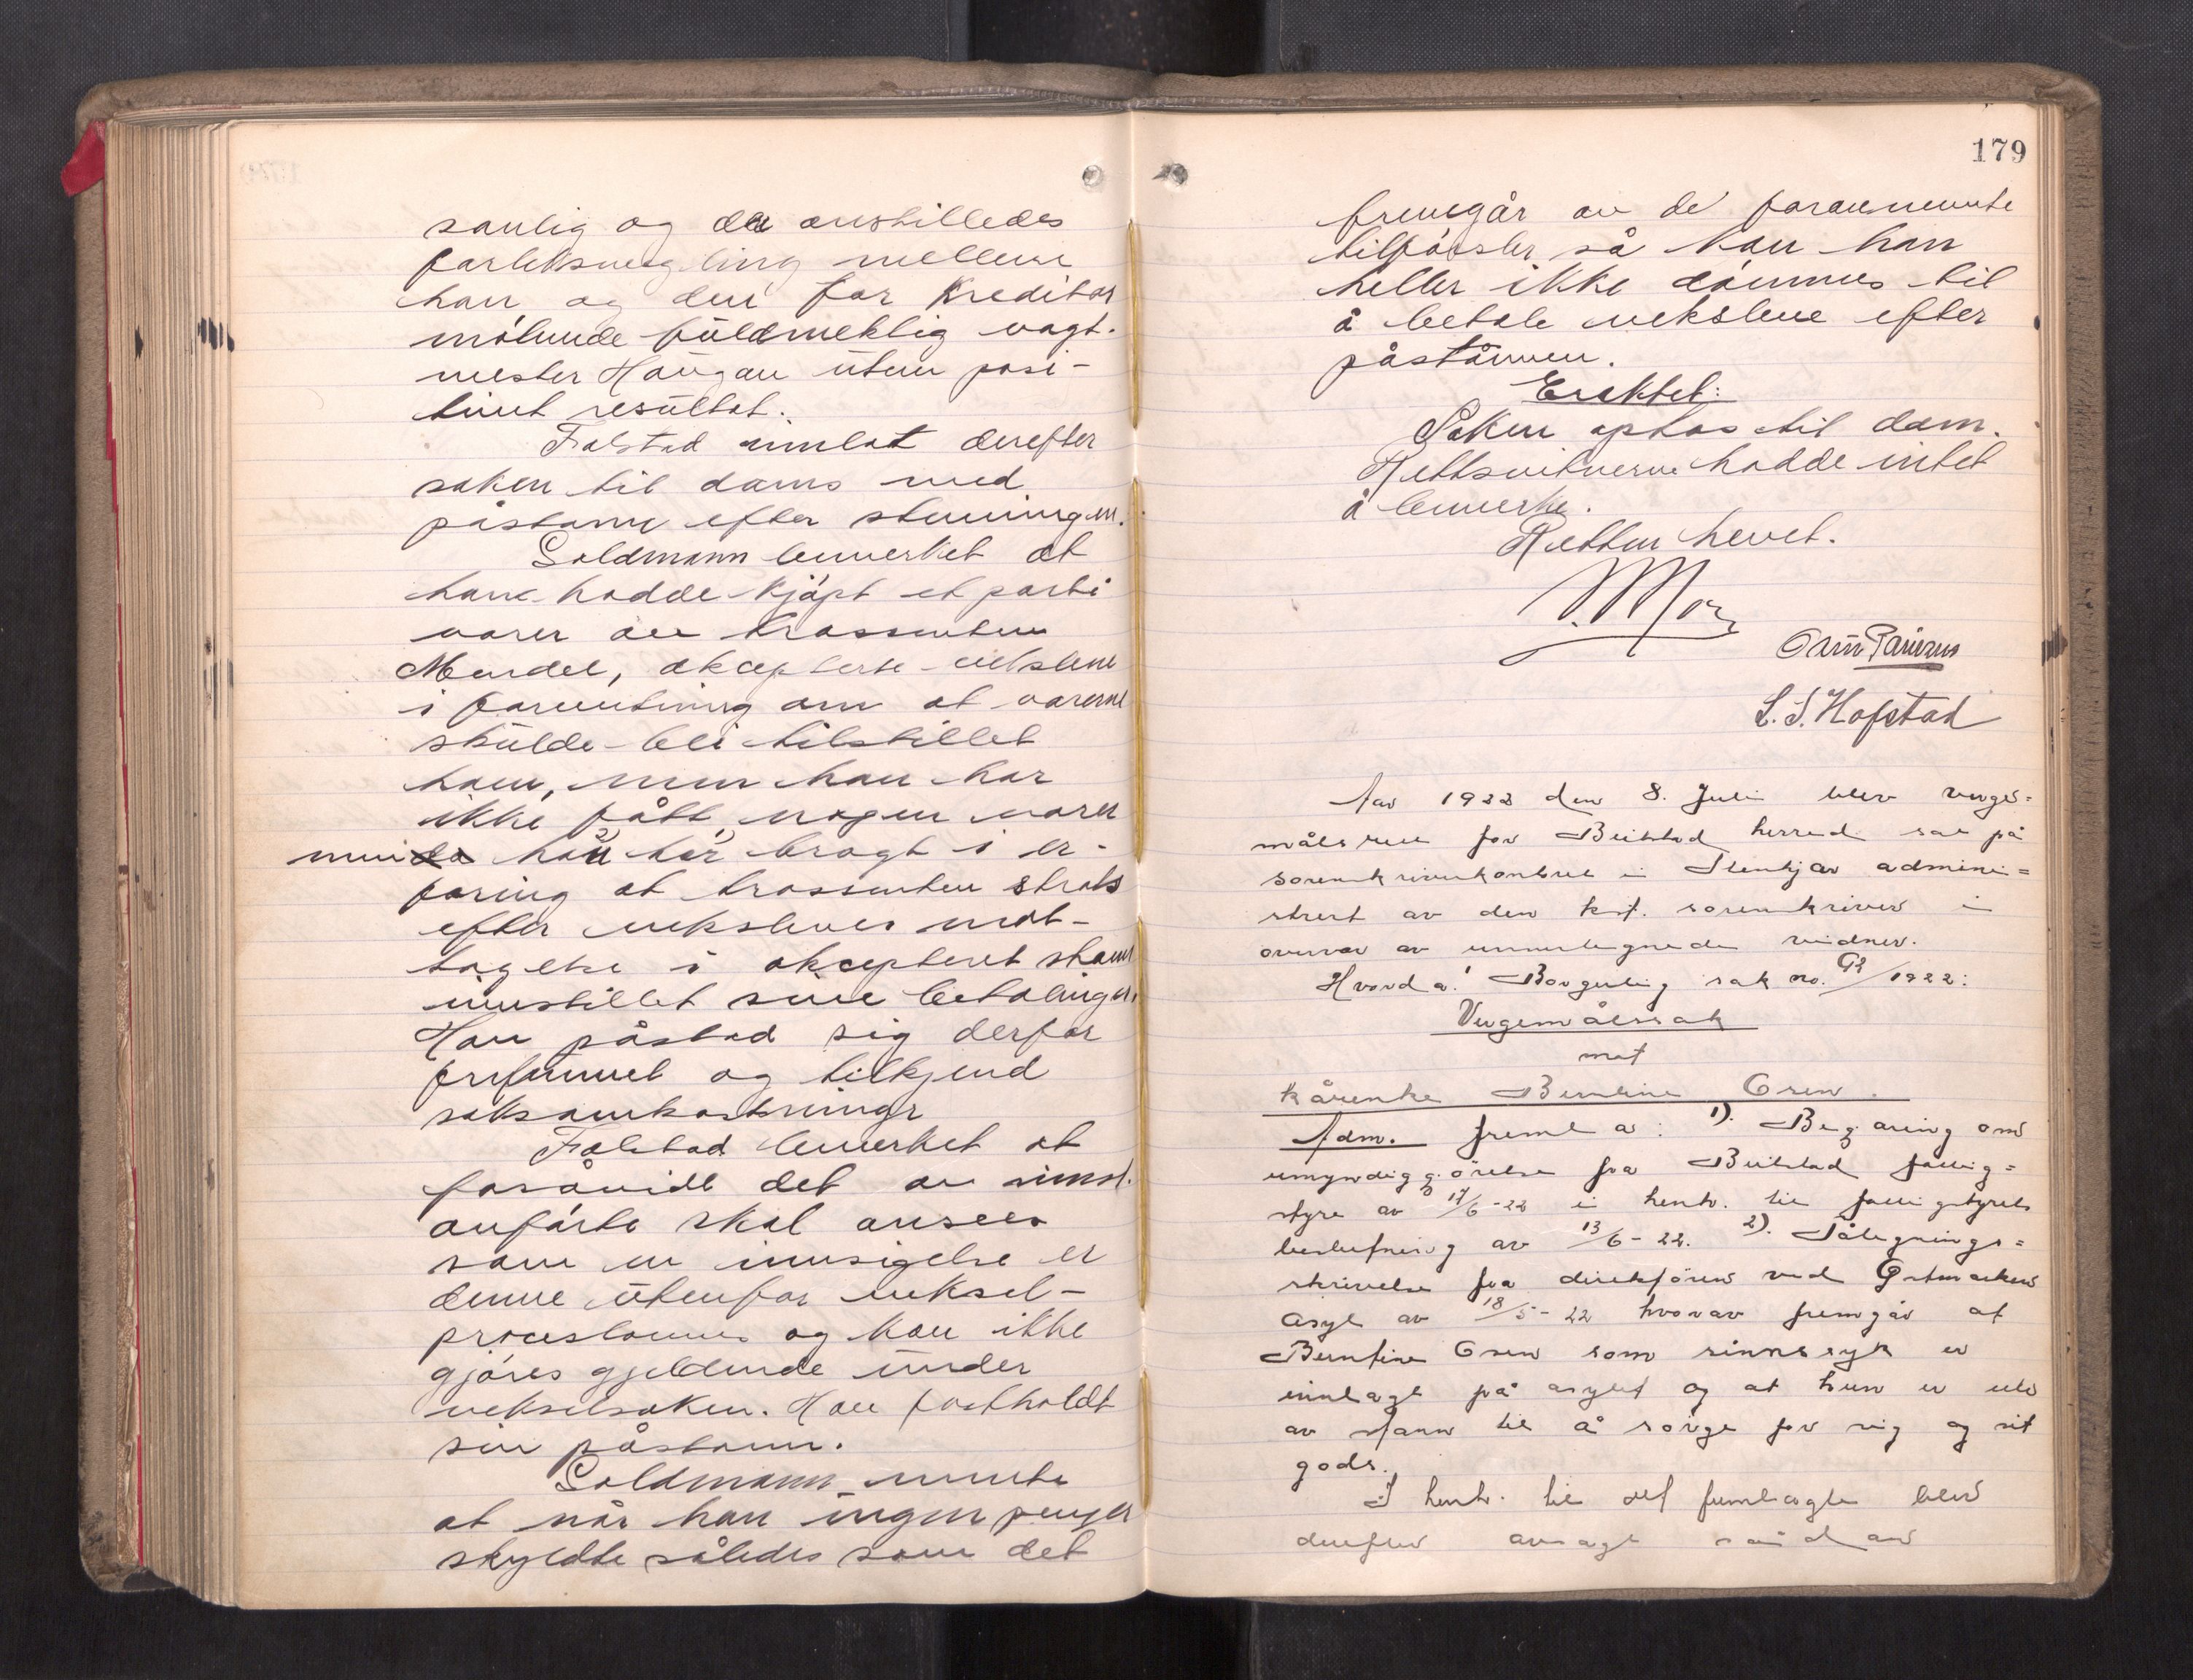 sønlig og det anstilledes
forliksmegling mellem
han og den for kreditor
møtende fuldmektig vagt-
mester Haugan uten posi-
tivt resultat.
Falstad innlot derefter
saken til doms med
påstann efter stevningen.
Goldmann bemerket at
han hadde kjøpt et parti
varer av trassenten
Mendel, aksepterte vekslene
i forventning om at varerne
skulde bli tilstillet
ham, men han har
ikke fått nogen varer
men han har bragt i er-
faring at trassenten straks
efter vekslenes mot-
tagelse i akceptert stann
innstillet sine betalinger.
Han påstod sig derfor
frifunnet og tilkjend
saksomkostninger
Falstad bemerket at
forsåvidt det av innst.
anførte skal ansees
som en innsigelse er
denne utenfor veksel-
procesloven og kan ikke
gjøres gjeldende under
vekselsaken. Han fastholdt
sin påstann.
Goldmann mente
at når han ingen penger
skyldte således som det
179
fremgår av de forannevnte
tilførsler så kan han
heller ikke dømmes til
å betale vekslene efter
påstannen.
Erektet:
Saken optas til dom.
Rettsvitnerne hadde intet
å bemerke.
Retten hevet.
L. S. Hofstad
Aar 1922 den 8. Juli blev verge-
målsrett for Beitstad herred sat på
sorenskriverkontoret i Stenkjær admini-
strert av den kst. sorenskriver i
overvær av unnertegnede vidner.
Hvorda: Borgerlig sak no. 92/1922:
Vergemålssak
mot
kårenke Berntine Osen.
Adm. fremla: 1). Begjæring om
umyndiggjørelse fra Beitstad fattig-
styre av 17/6-22 i henh. til fattigstyrets
beslutning av 13/6-22. 2). Påtegnings-
skrivelse fra direktøren ved Rotvold
asyl av 18/5-22 hvorav fremgår at
Berntine Osen som sinnssyk er
innlagt på asylet og at hun er ute
av stann til å sørge for sig og sit
gods.
I henh. til det fremlagte blev
derefter avsagt sådan